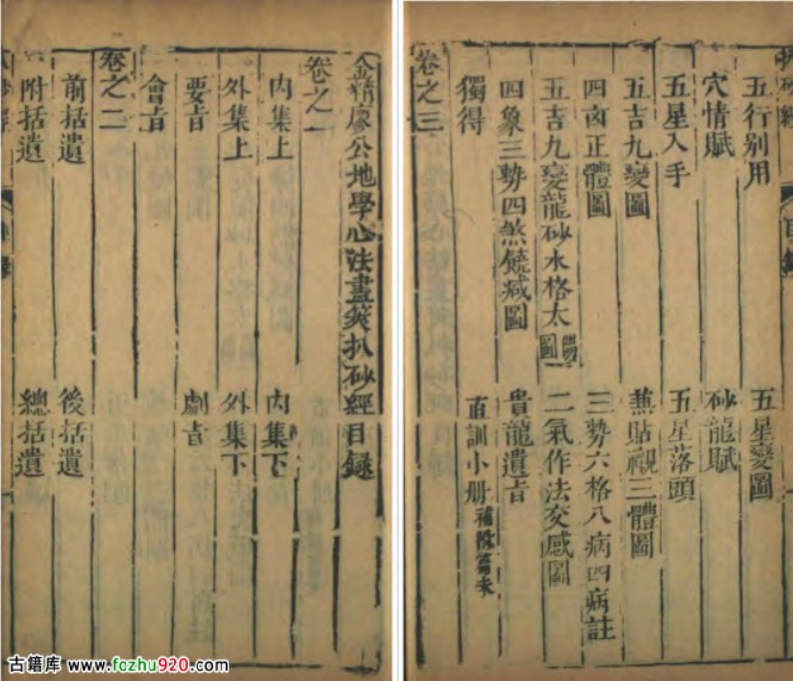 金精廖公地學心法畫筴扒砂經目録
卷之一
内集上　内集下
外集上　外集下
要旨　劇旨
會旨
卷之二
前括遺　後括遺
附括遺　總括遺
五行别用　五星變圖
穴情賦　砂龍賦
五星入手　五星落頭
五吉九變圖　兼貼襯三體圖
四凶正體圖　三勢六格八病四病註
五吉九變龍砂水格太陽圖　二氣作法交感圖
四象三勢四煞饒减圖　貴龍遺旨
獨得　直訓小册補附篇末
卷之三
古籍库 www.fozhu920.com